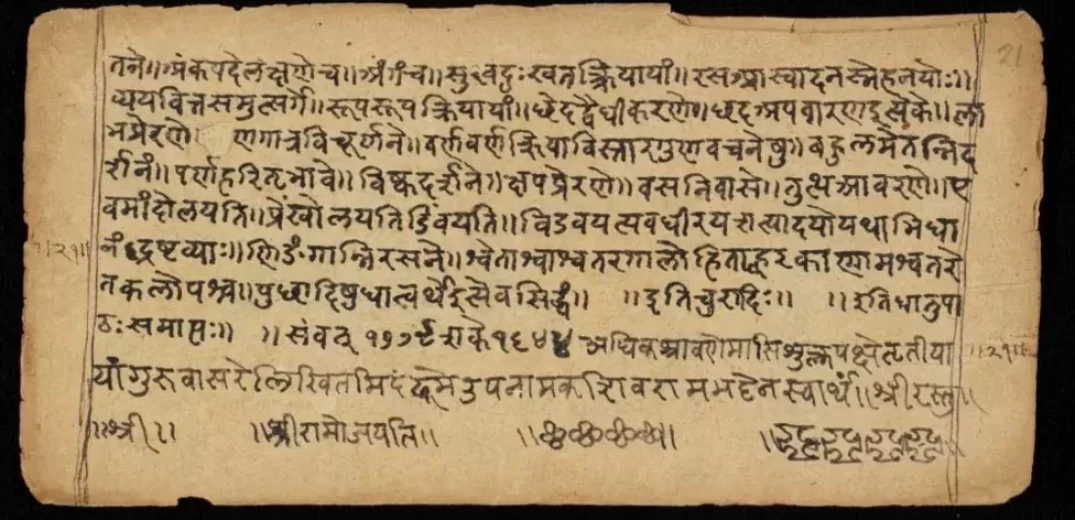 तने॥ अंक पदे लक्षणे च॥ अंग च॥ सुख दुःख तत्क्रियायां॥ रस आस्वादनस्नेहनयोः॥
व्यय वित्तसमुत्सर्गे॥ रूप रूपक्रियायां॥ छेद द्वैधीकरणे॥ छद अपवारण इत्येके॥ ला
भ प्रेरणे॥ गात्रविचूर्णने॥ वर्ण वर्णक्रियाविस्तारगुणवचनेषु॥ बहुलमेतन्निद
र्शनं॥ पर्ण हरितभावे॥ विष्क दर्शने॥ क्षप प्रेरणे॥ वस निवासे॥ तुत्थ आवरणे॥ ए
वमांदोलयति॥ प्रेंखोलयति विडंबयति॥ अवधीरयत्यादयो यथाभिधा
नं द्रष्टव्याः॥ णिङंगान्निरसने॥ श्वेताश्वाश्वतरगालोडिताह्वरकाणामश्वतरे
तकलोपश्च॥ पुछादिषु धात्वर्थ इत्येव सिद्धं॥ ॥ इति चुरादिः॥ ॥ इति धातुपा
ठः समाप्तः॥ ॥ संवत् १७७९ शके १६४४ अधिकश्रावणे मासि शुक्लपक्षे तृतीया
यां गुरुवासरे लिखितमिदं उपनामक शिवरामभट्टेन स्वार्थं॥ श्रीरस्तु॥
॥श्री॥ ॥श्रीरामो जयति॥
॥२१॥
॥२१॥
21